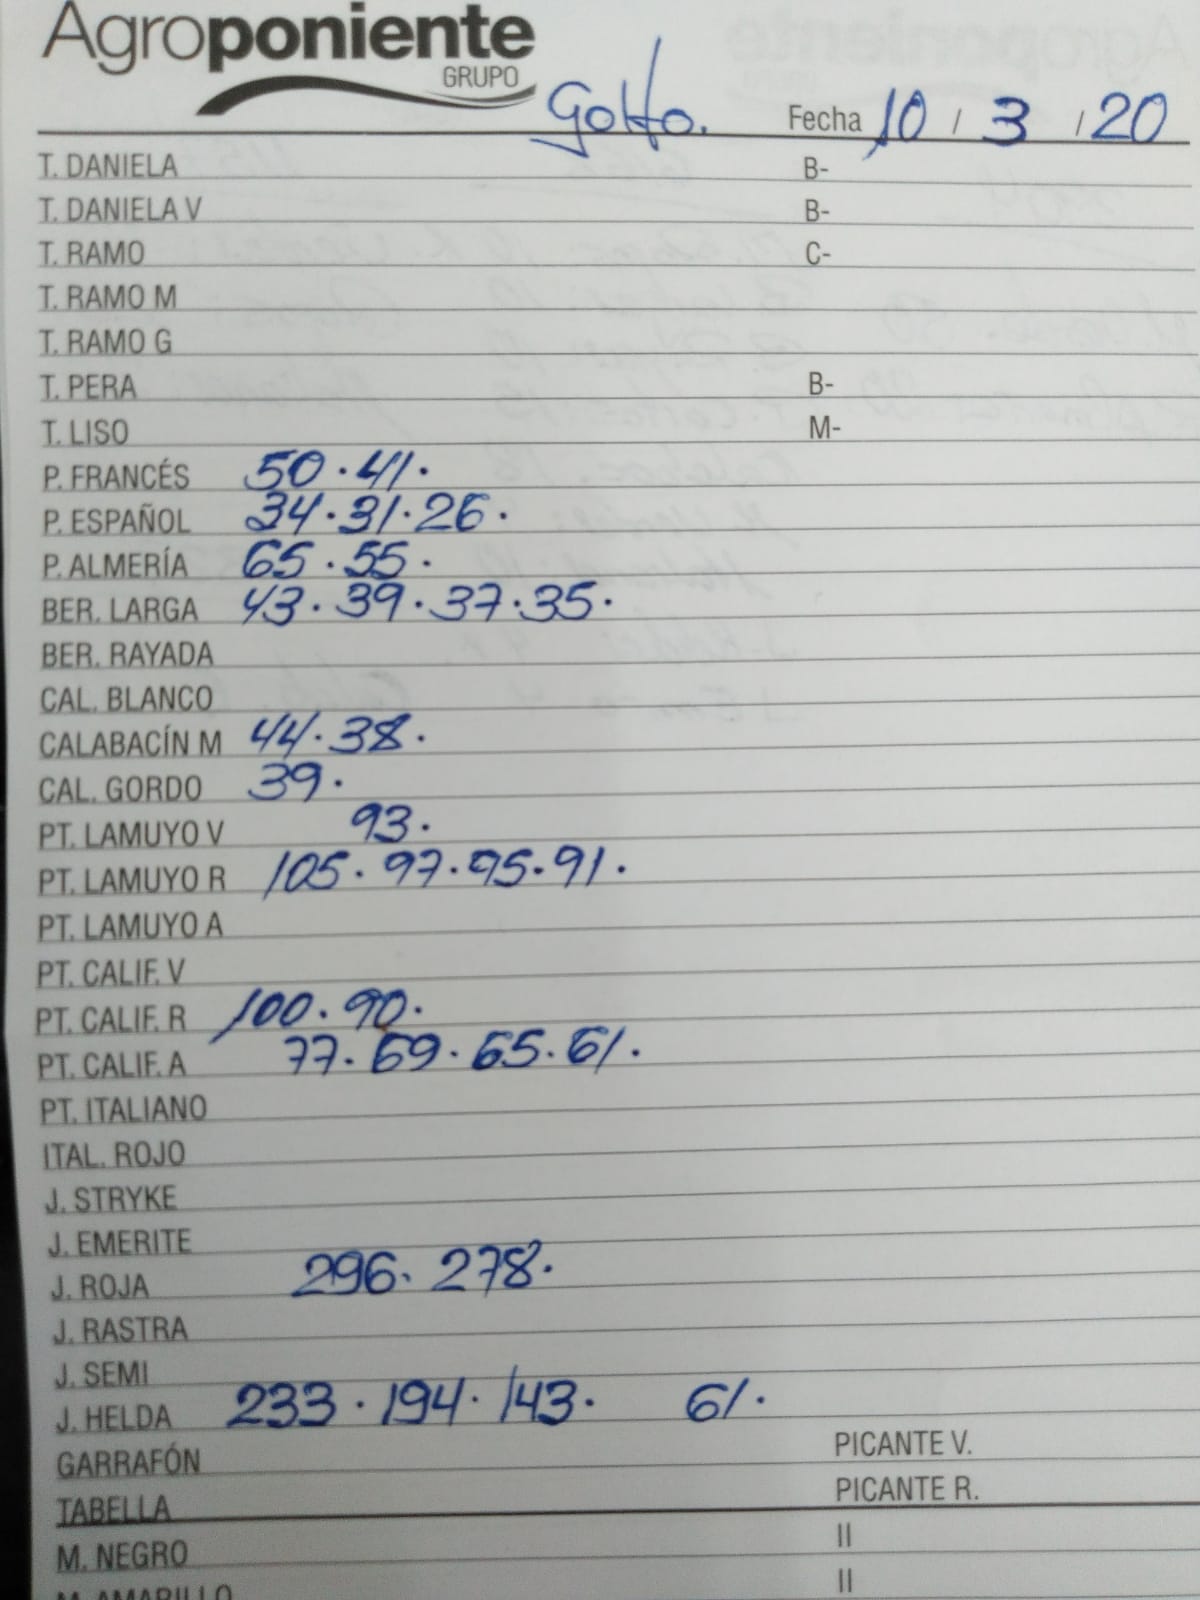 Agroponiente
GRUPO
Golfo. Fecha 10 / 3 / 20
T. DANIELA B-
T. DANIELA V B-
T. RAMO C-
T. RAMO M
T. RAMO G
T. PERA B-
T. LISO M-
P. FRANCÉS 50 · 41 ·
P. ESPAÑOL 34 · 31 · 26 ·
P. ALMERÍA 65 · 55 ·
BER. LARGA 43 · 39 · 37 · 35 ·
BER. RAYADA
CAL. BLANCO
CALABACÍN M 44 · 38 ·
CAL. GORDO 39 ·
PT. LAMUYO V 93 ·
PT. LAMUYO R 105 · 97 · 95 · 91 ·
PT. LAMUYO A
PT. CALIF. V
PT. CALIF. R 100 · 90 ·
PT. CALIF. A 77 · 69 · 65 · 61 ·
PT. ITALIANO
ITAL. ROJO
J. STRYKE
J. EMERITE
J. ROJA 296 · 278 ·
J. RASTRA
J. SEMI
J. HELDA 233 · 194 · 143 · 61 ·
GARRAFÓN PICANTE V.
TABELLA PICANTE R.
M. NEGRO II
M. AMARILLO II